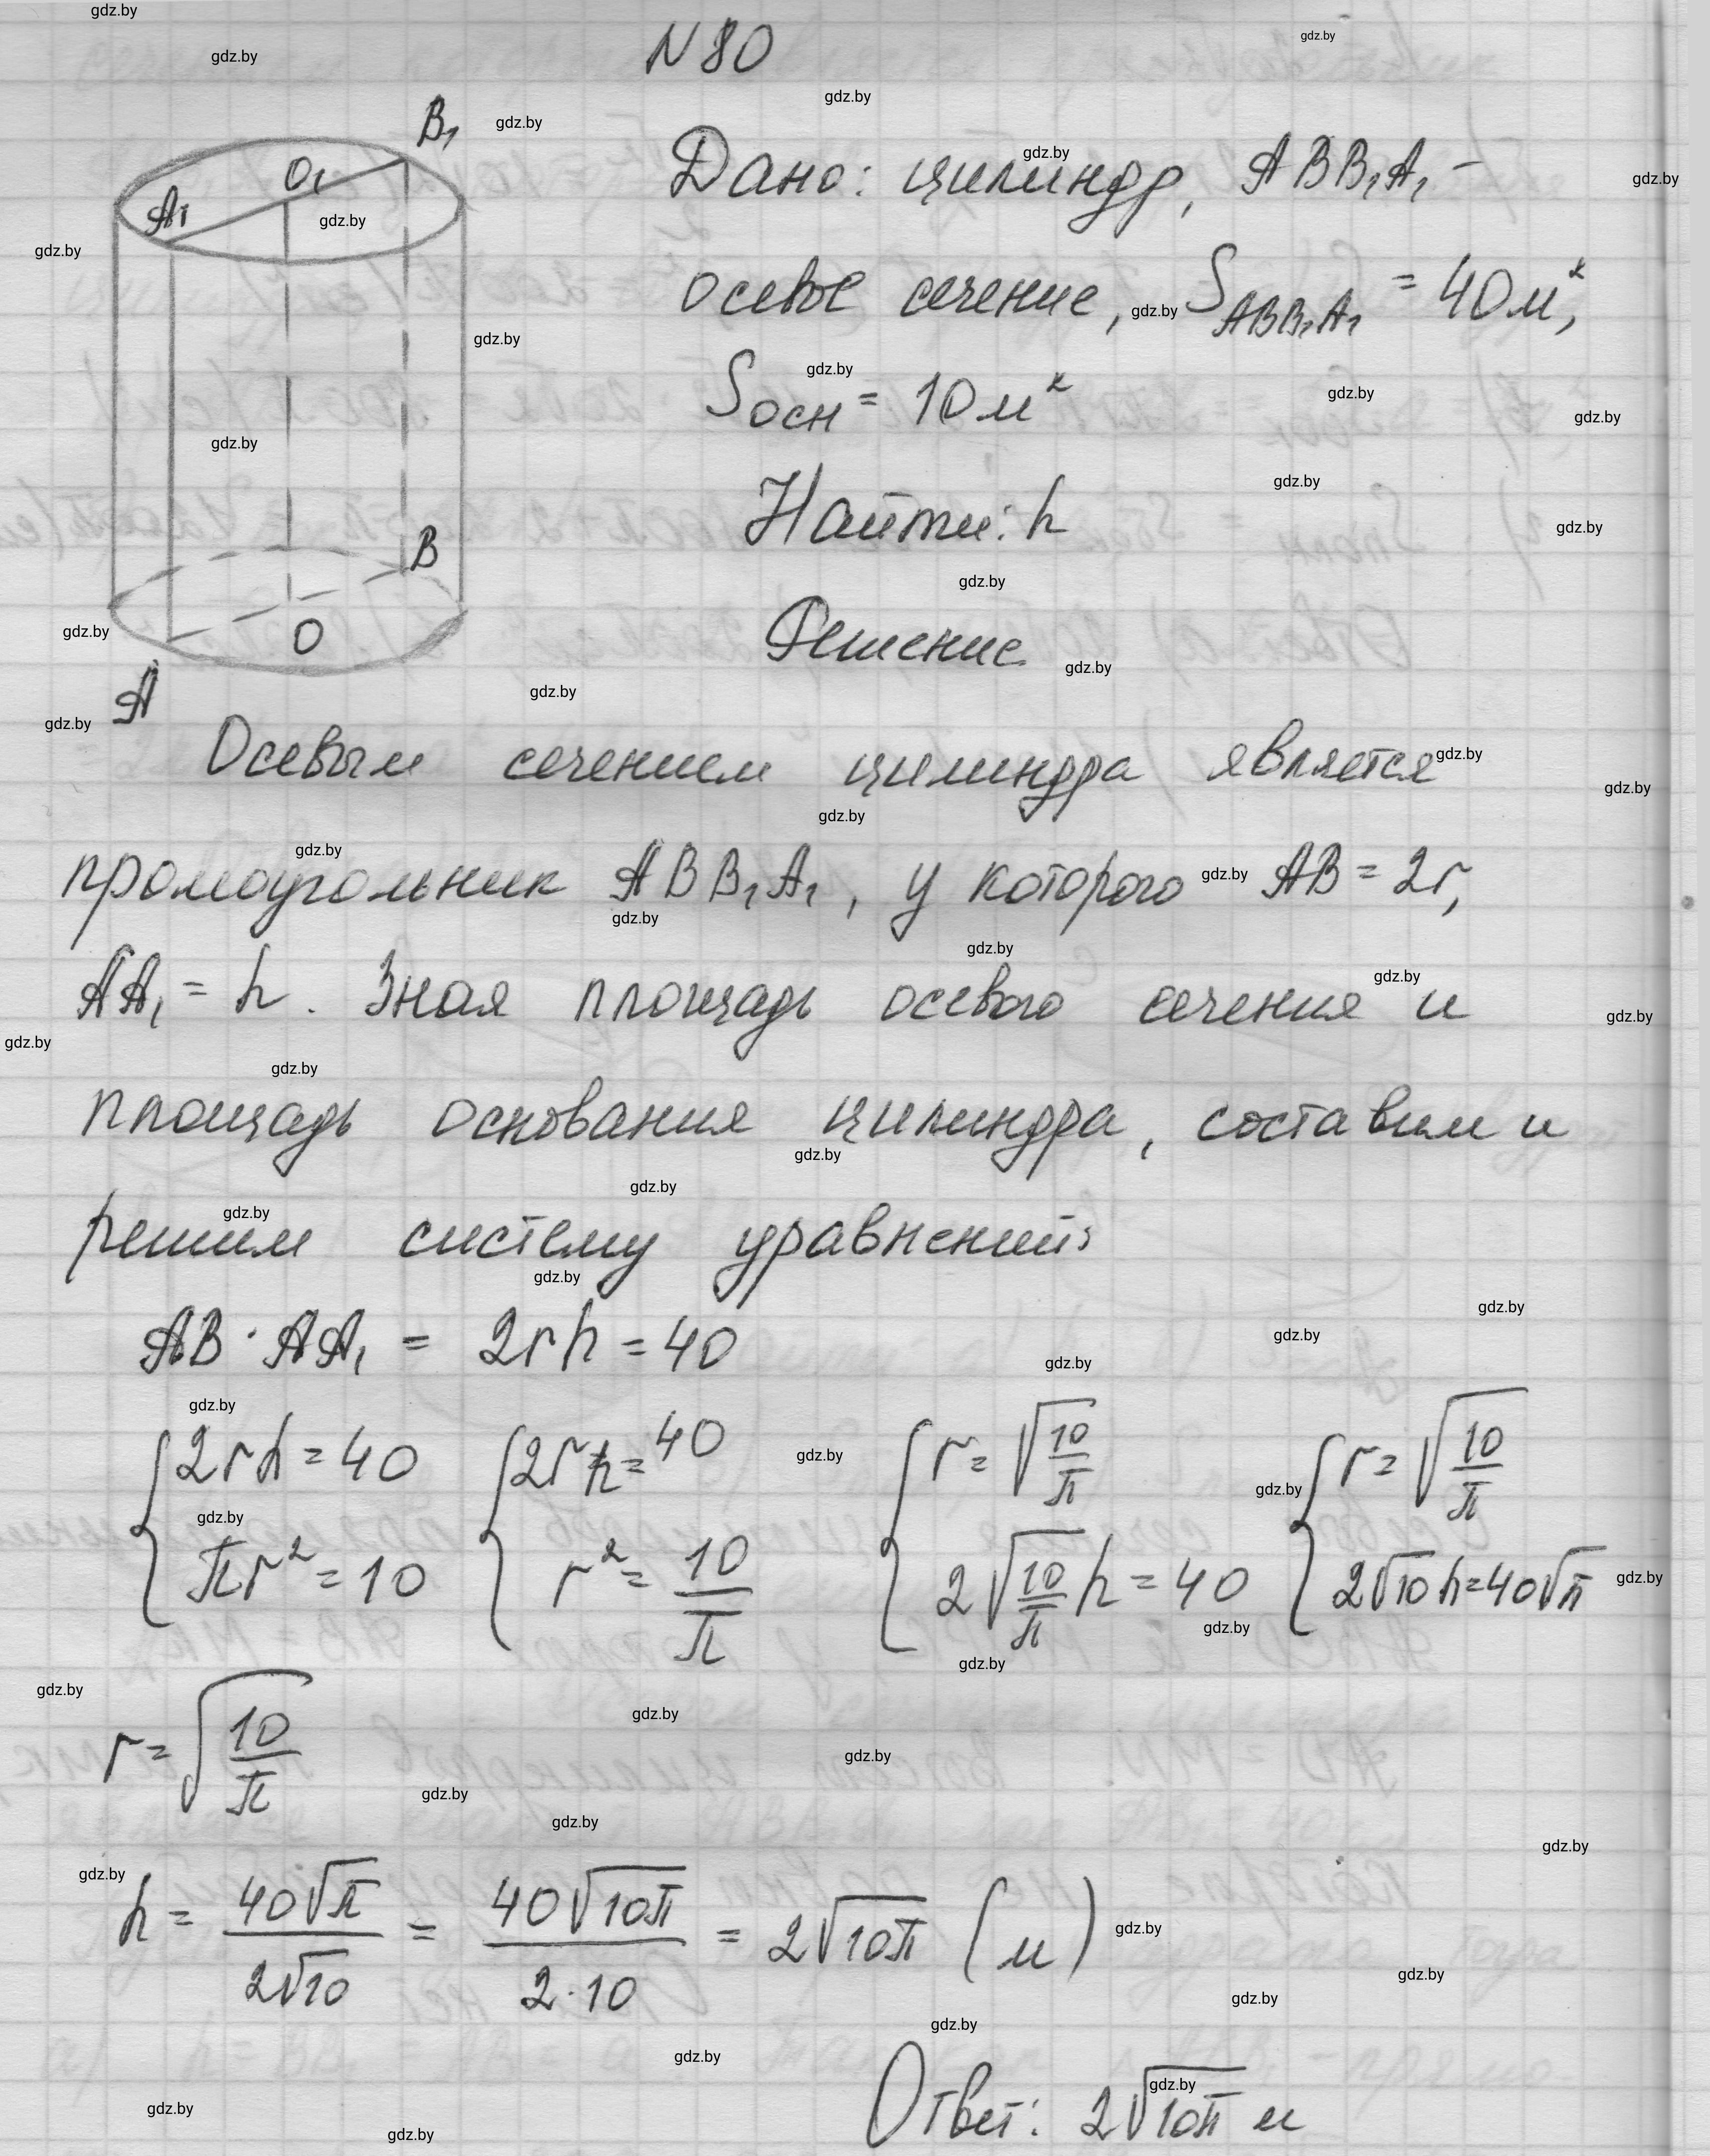 N 80
B₁
O₁
A₁
B
O
A
Дано: цилиндр, ABB₁A₁ –
осевое сечение, S_ABB₁A₁ = 40 м²,
Sосн = 10 м²
Найти: h
Решение
Осевым сечением цилиндра является
прямоугольник ABB₁A₁, у которого AB = 2r,
AA₁ = h. Зная площадь осевого сечения и
площадь основания цилиндра, составим и
решим систему уравнений:
AB · AA₁ = 2rh = 40
{2rh = 40 {2rh = 40 {r = √(10/π) {r = √(10/π)
πr² = 10 r² = 10/π 2√(10/π) h = 40 2√10 h = 40√π
r = √(10/π)
h = 40√π/2√10 = 40√10π/2·10 = 2√10π (м)
Ответ: 2√10π м
gdz.by